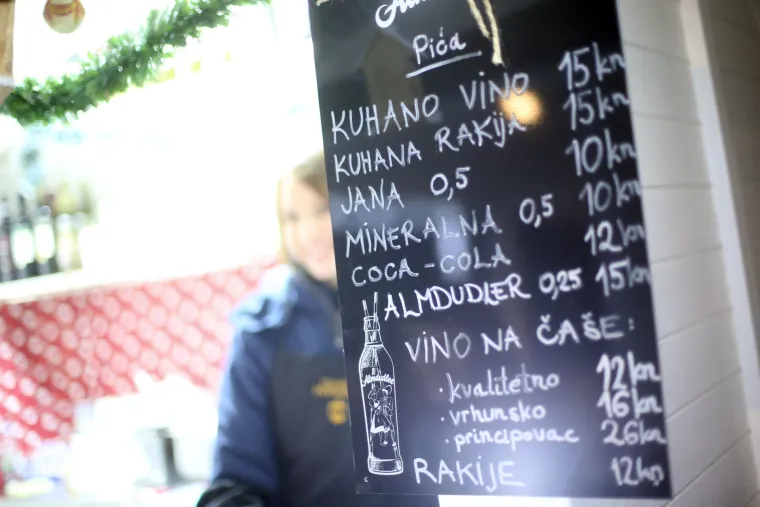 Pića
KUHANO VINO 15kn
KUHANA RAKIJA 15kn
JANA 0,5 10kn
MINERALNA 0,5 10kn
COCA-COLA 12kn
ALMDUDLER 0,25 15kn
VINO NA ČAŠE:
· kvalitetno 12kn
· vrhunsko 16kn
· principovac 26kn
RAKIJE 12kn
Almdudler